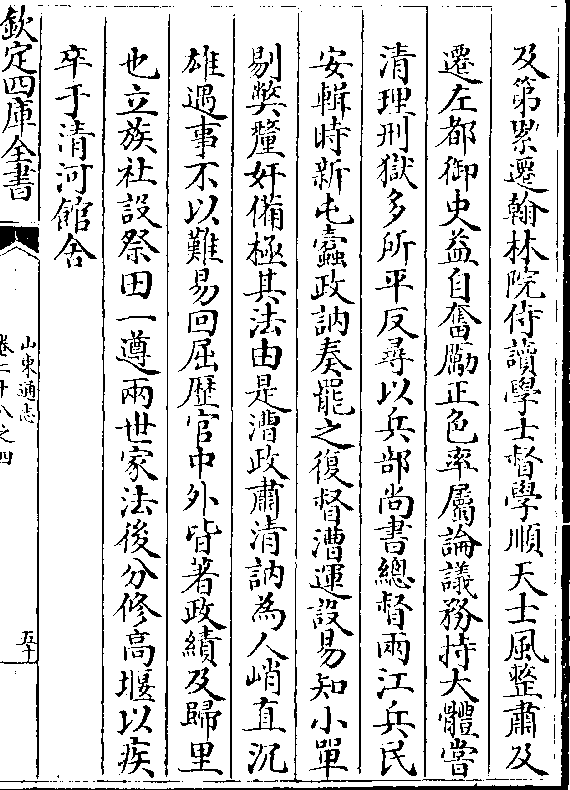 及第累遷翰林院侍讀學士督學順天士風整肅及
遷左都御史益自奮勵正色率屬論議務持大體嘗
清理刑獄多所平反尋以兵部尚書總督兩江兵民
安輯時新屯蠧政訥奏罷之復督漕運設易知小單
剔獘釐奸備極其法由是漕政肅清訥為人峭直沉
雄遇事不以難易回屈歴官中外皆著政績及歸里
也立族社設祭田一遵兩世家法後分修高堰以疾
卒于清河館舍
欽定四庫全書
山東通志
卷二十八之四
五十